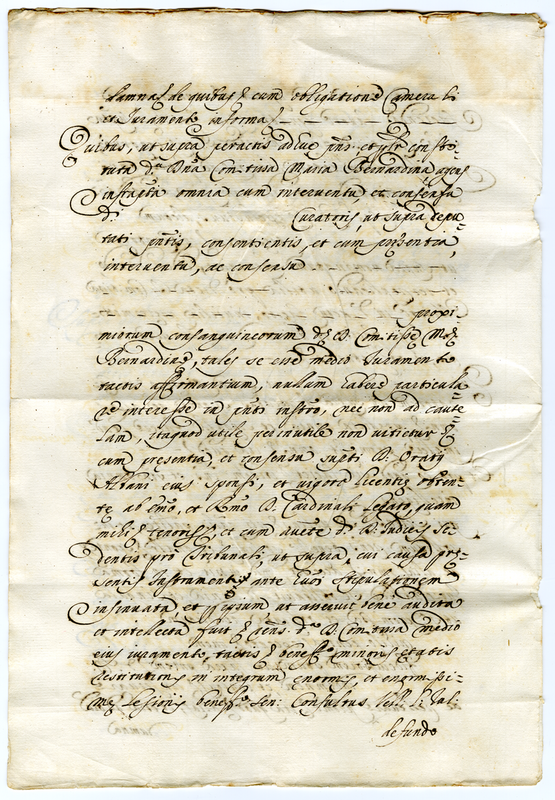 damna etc. de quibus etc. cum obligatione Camerali
et Juramento in forma
Quibus, ut supra peractis ad eue pñs et psr consti-
tuta d.ª Dña Comitissa Maria Bernardina agens
infrapta omnia cum interventu et consensu
d. Curatoris, ut supra depu-
tati pñtis, consentientis, et cum presentia,
interventu, ac consensu
proxi
miorum consanguineorum d. D. Comitisse Mæ
Bernardine, tales se esse medio Juramento
tactis affirmantium, nullum habere particula-
re interesse in pñti instro, nec non ad caute-
lam, itaquod utile per inutile non vitietur
cum presentia, et consensu supti D. Oratij
Albani eius sponsi, et vigore licentie obten-
te ab Emo, et Rmo D. Cardinali Legato, quam
mihi tenoris, et cum aucte d. D. Judicis se-
dentis pro Tribunali, ut supra, cui causa pre-
sentis Instrumenti ante eius stipulationem
insinuata, et p ipsum, ut asseruit bene audita
et intellecta fuit sens d.ª D. Comitissa medio
eius iuramento, tactis beneff.º minoris etatis
restitutionis in integrum enormis, et enormissi-
me Lesionis beneff.º Sen: Consultus Vell.
defundo